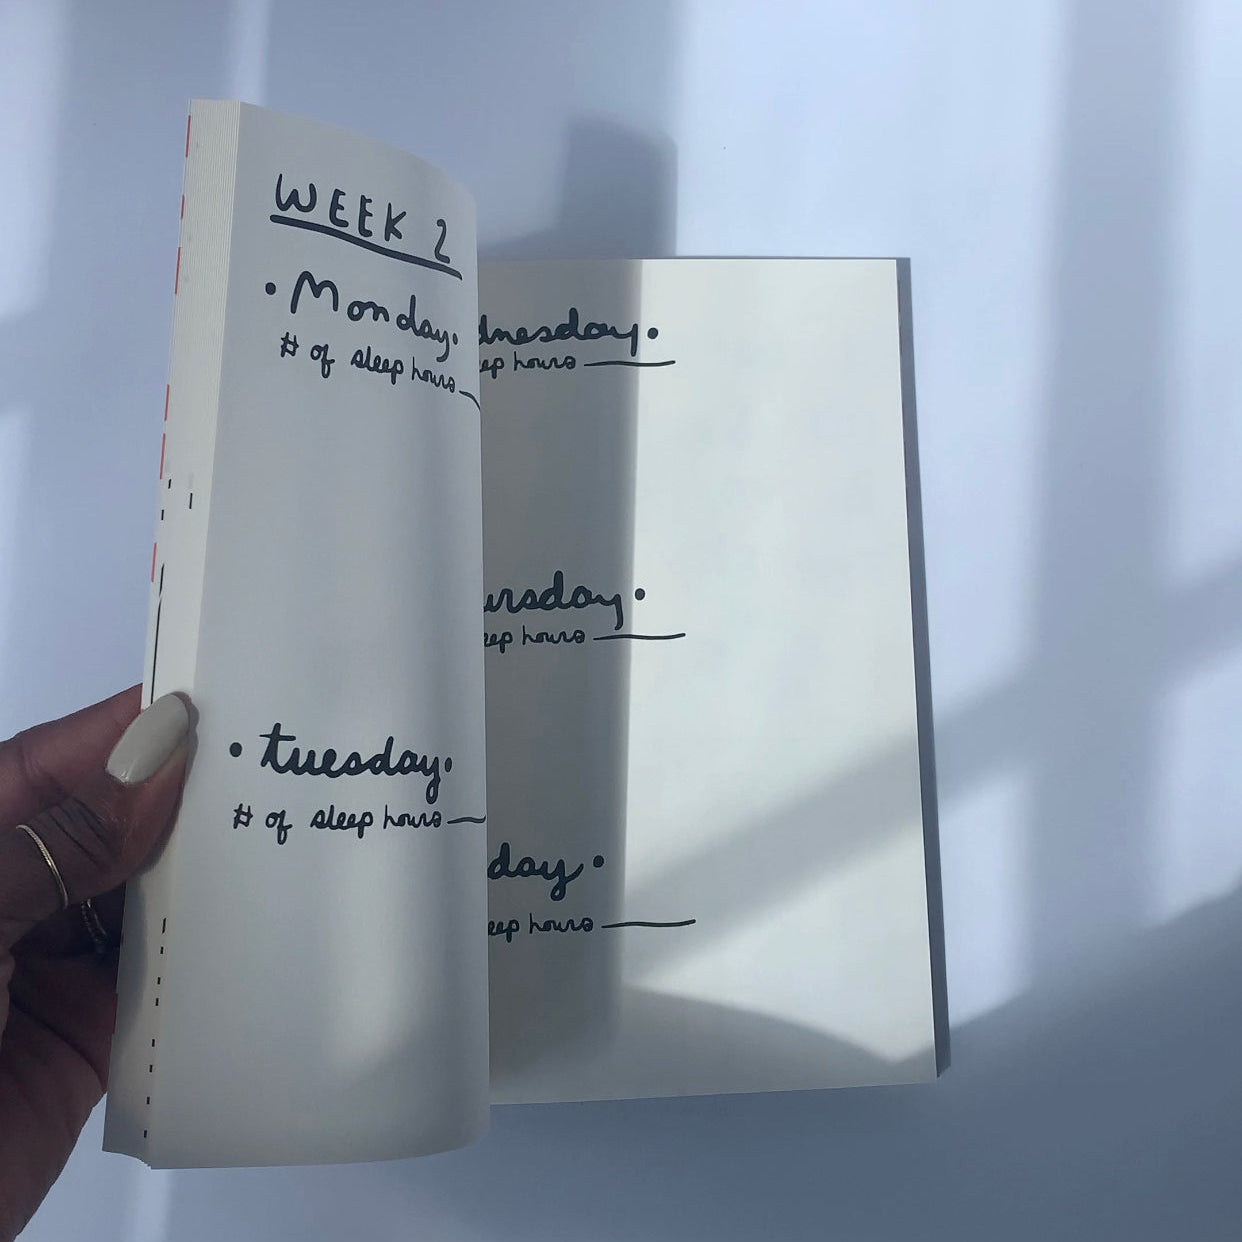 WEEK 2
• Monday•
# of sleep hours
• tuesday•
# of sleep hours
dnesday•
ep hours
ursday•
eep hours
day•
eep hours